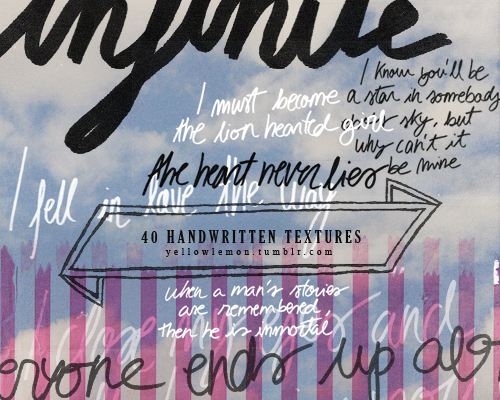 infinite
I know you'll be
a star in somebody
sky, but
why can't it
be mine
I must become
the lion hearted girl
the heart never lies
I fell in love the way
40 HANDWRITTEN TEXTURES
yellowlemon.tumblr.com
when a man's stories
are remembered,
then he is immortal
and
eryone ends up alo